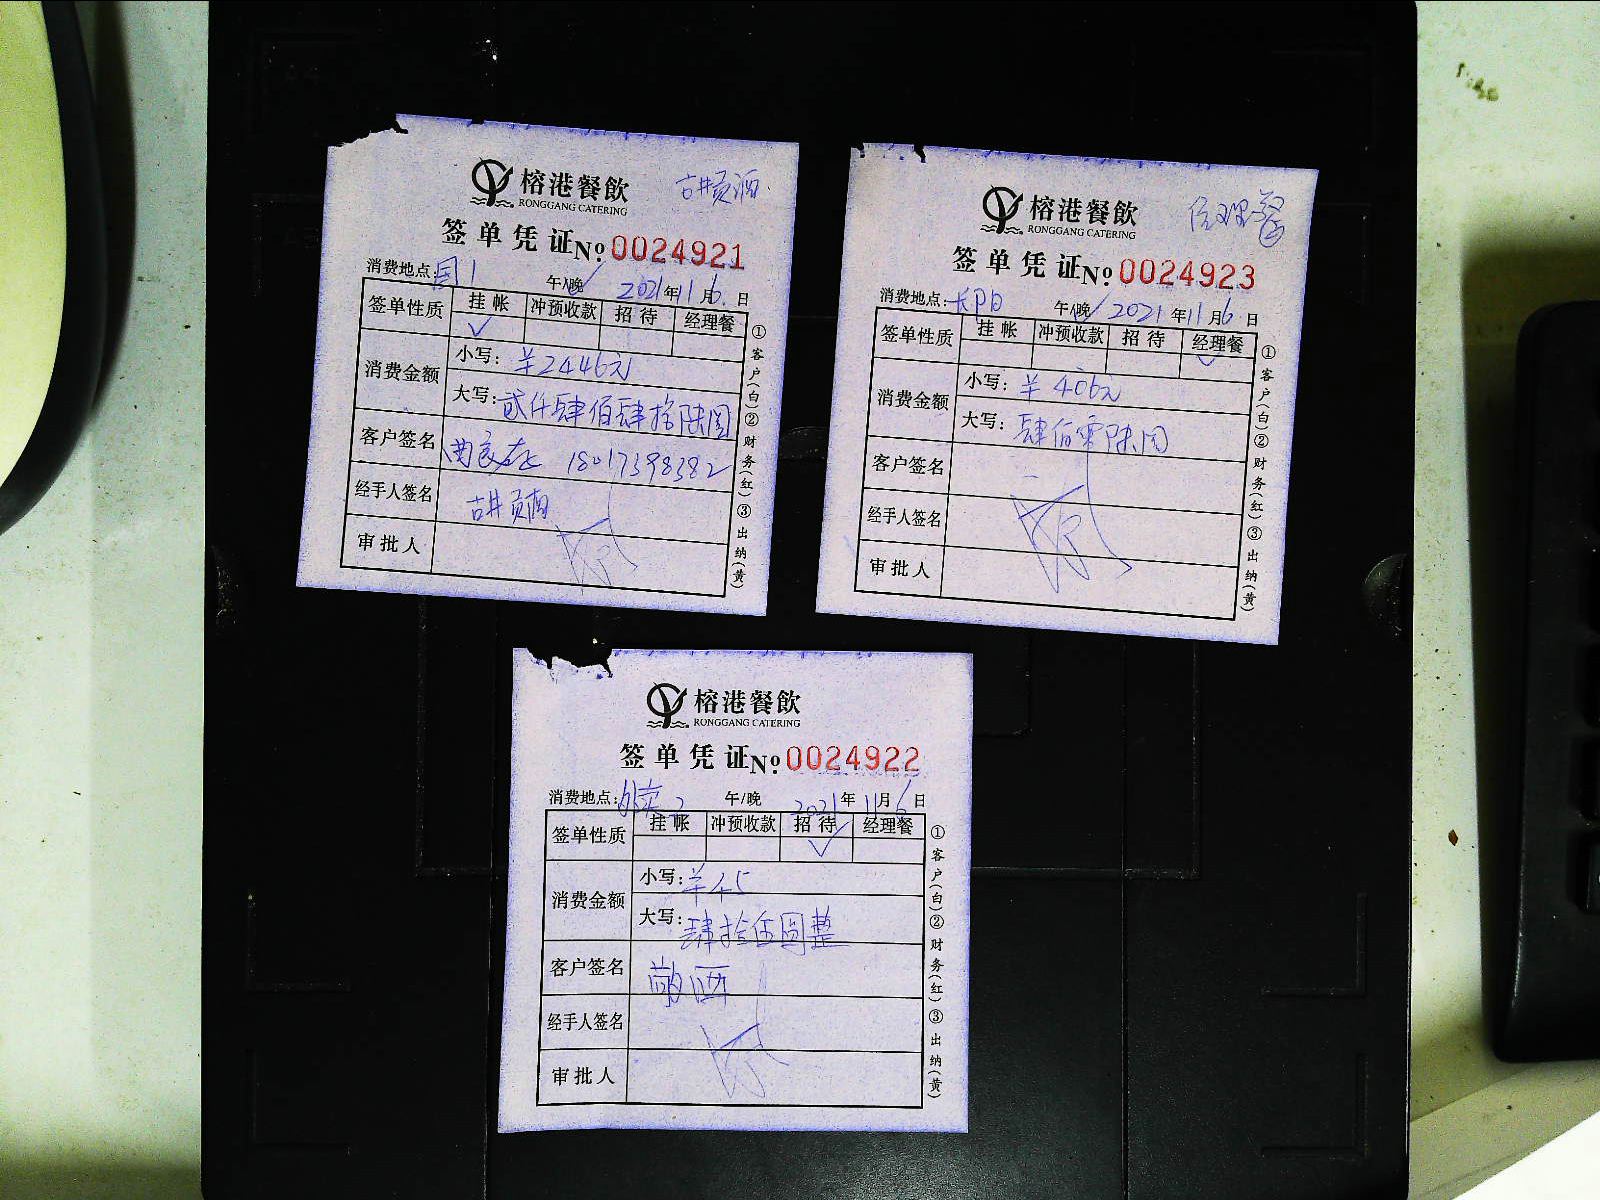 榕港餐飲 古井贡酒
RONGGANG CATERING
签单凭证№0024921
消费地点:国1 午/晚 2021年11月6日
签单性质 挂帐 冲预收款 招待 经理餐
✓
消费金额 小写:¥2446元
大写:贰仟肆佰肆拾陆圆
客户签名 18017398382
经手人签名 古井贡酒
审批人
①客户(白)②财务(红)③出纳(黄)
榕港餐飲
RONGGANG CATERING
签单凭证№0024923
消费地点: 午/晚 2021年11月6日
签单性质 挂帐 冲预收款 招待 经理餐
✓
消费金额 小写:¥406元
大写:肆佰零陆圆
客户签名
经手人签名
审批人
①客户(白)②财务(红)③出纳(黄)
榕港餐飲
RONGGANG CATERING
签单凭证№0024922
消费地点:外卖2 午/晚 2021年11月6日
签单性质 挂帐 冲预收款 招待 经理餐
✓
消费金额 小写:¥45
大写:肆拾伍圆整
客户签名
经手人签名
审批人
①客户(白)②财务(红)③出纳(黄)